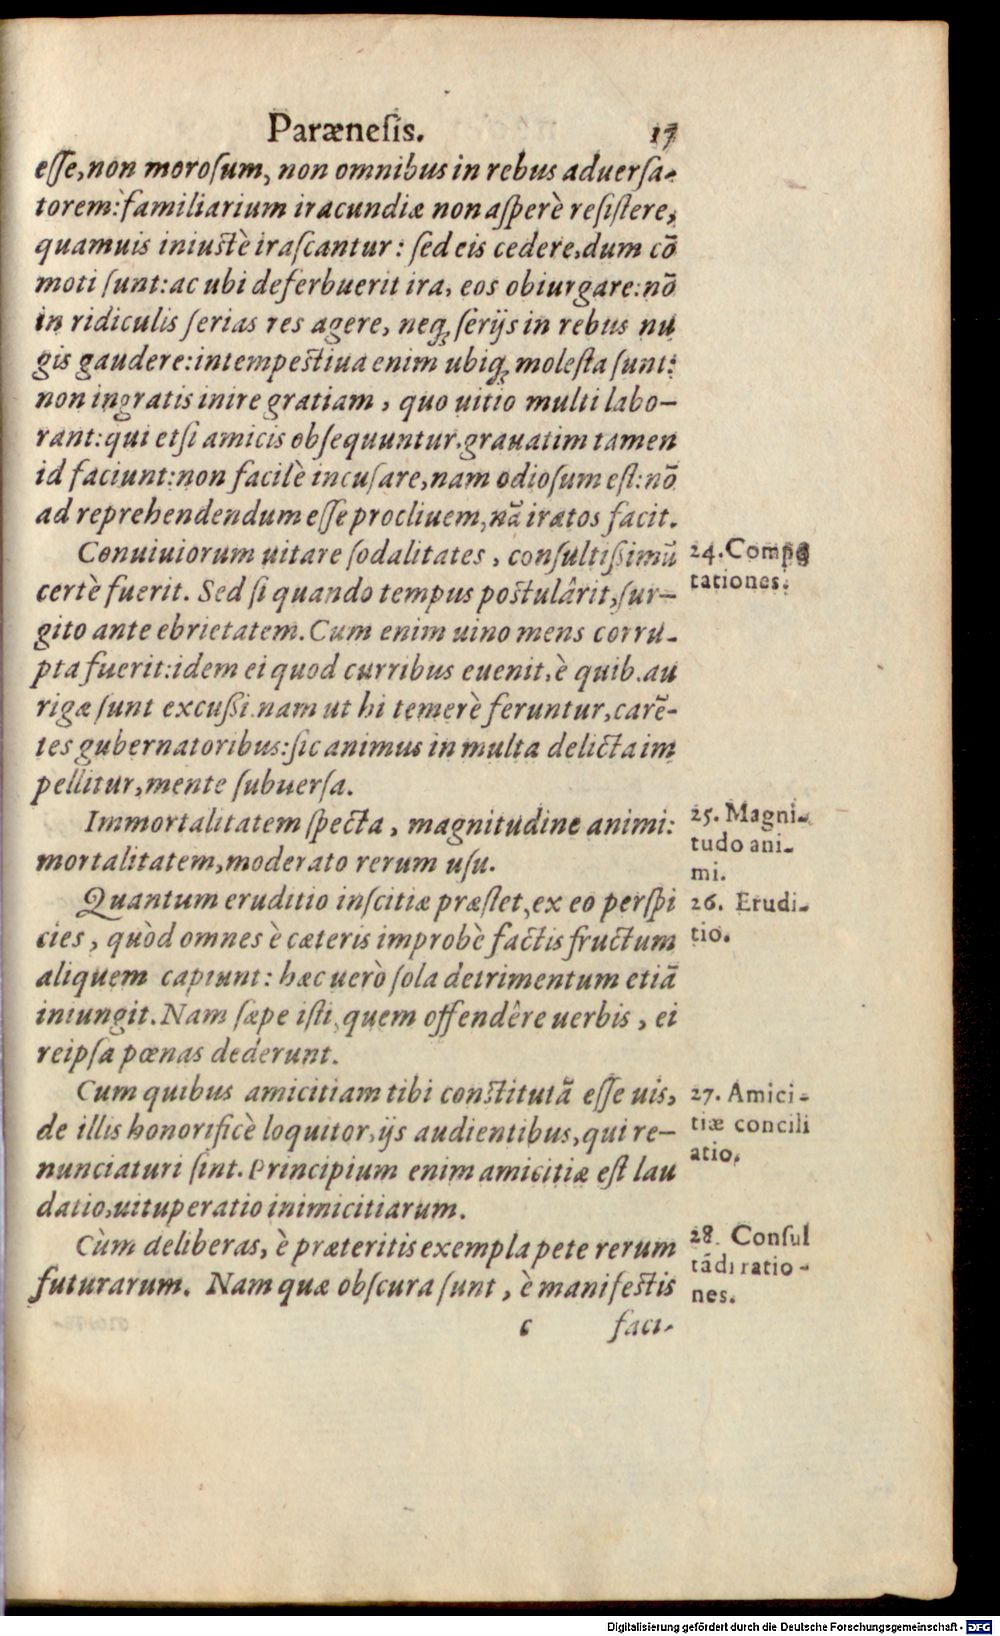 Parænesis. 17
esse, non morosum, non omnibus in rebus aduersa-
torem: familiarium iracundiæ non asperè resistere,
quamuis iniustè irascantur: sed eis cedere, dum cō
moti sunt: ac ubi deferbuerit ira, eos obiurgare: nō
in ridiculis serias res agere, neq; serijs in rebus nu
gis gaudere: intempestiua enim ubiq; molesta sunt:
non ingratis inire gratiam, quo uitio multi labo-
rant: qui etsi amicis obsequuntur, grauatim tamen
id faciunt: non facilè incusare, nam odiosum est: nō
ad reprehendendum esse procliuem, nā iratos facit.
Conuiuiorum uitare sodalitates, consultissimū
certè fuerit. Sed si quando tempus postulârit, sur-
gito ante ebrietatem. Cum enim uino mens corru-
pta fuerit: idem ei quod curribus euenit, è quib. au
rigæ sunt excussi. nam ut hi temerè feruntur, carē-
tes gubernatoribus: sic animus in multa delicta im
pellitur, mente subuersa.
Immortalitatem specta, magnitudine animi:
mortalitatem, moderato rerum usu.
Quantum eruditio inscitiæ præstet, ex eo perspi
cies, quòd omnes è cæteris improbè factis fructum
aliquem capiunt: hæc uerò sola detrimentum etiā
iniungit. Nam sæpe isti, quem offendêre uerbis, ei
reipsa pœnas dederunt.
Cum quibus amicitiam tibi constitutā esse uis,
de illis honorificè loquitor, ijs audientibus, qui re-
nunciaturi sint. Principium enim amicitiæ est lau
datio, uituperatio inimicitiarum.
Cùm deliberas, è præteritis exempla pete rerum
futurarum. Nam quæ obscura sunt, è manifestis
c faci-
24. Compo
tationes.
25. Magni-
tudo ani-
mi.
26. Erudi-
tio.
27. Amici-
tiæ concili
atio.
28. Consul
tādi ratio-
nes.
Digitalisierung gefördert durch die Deutsche Forschungsgemeinschaft - DFG